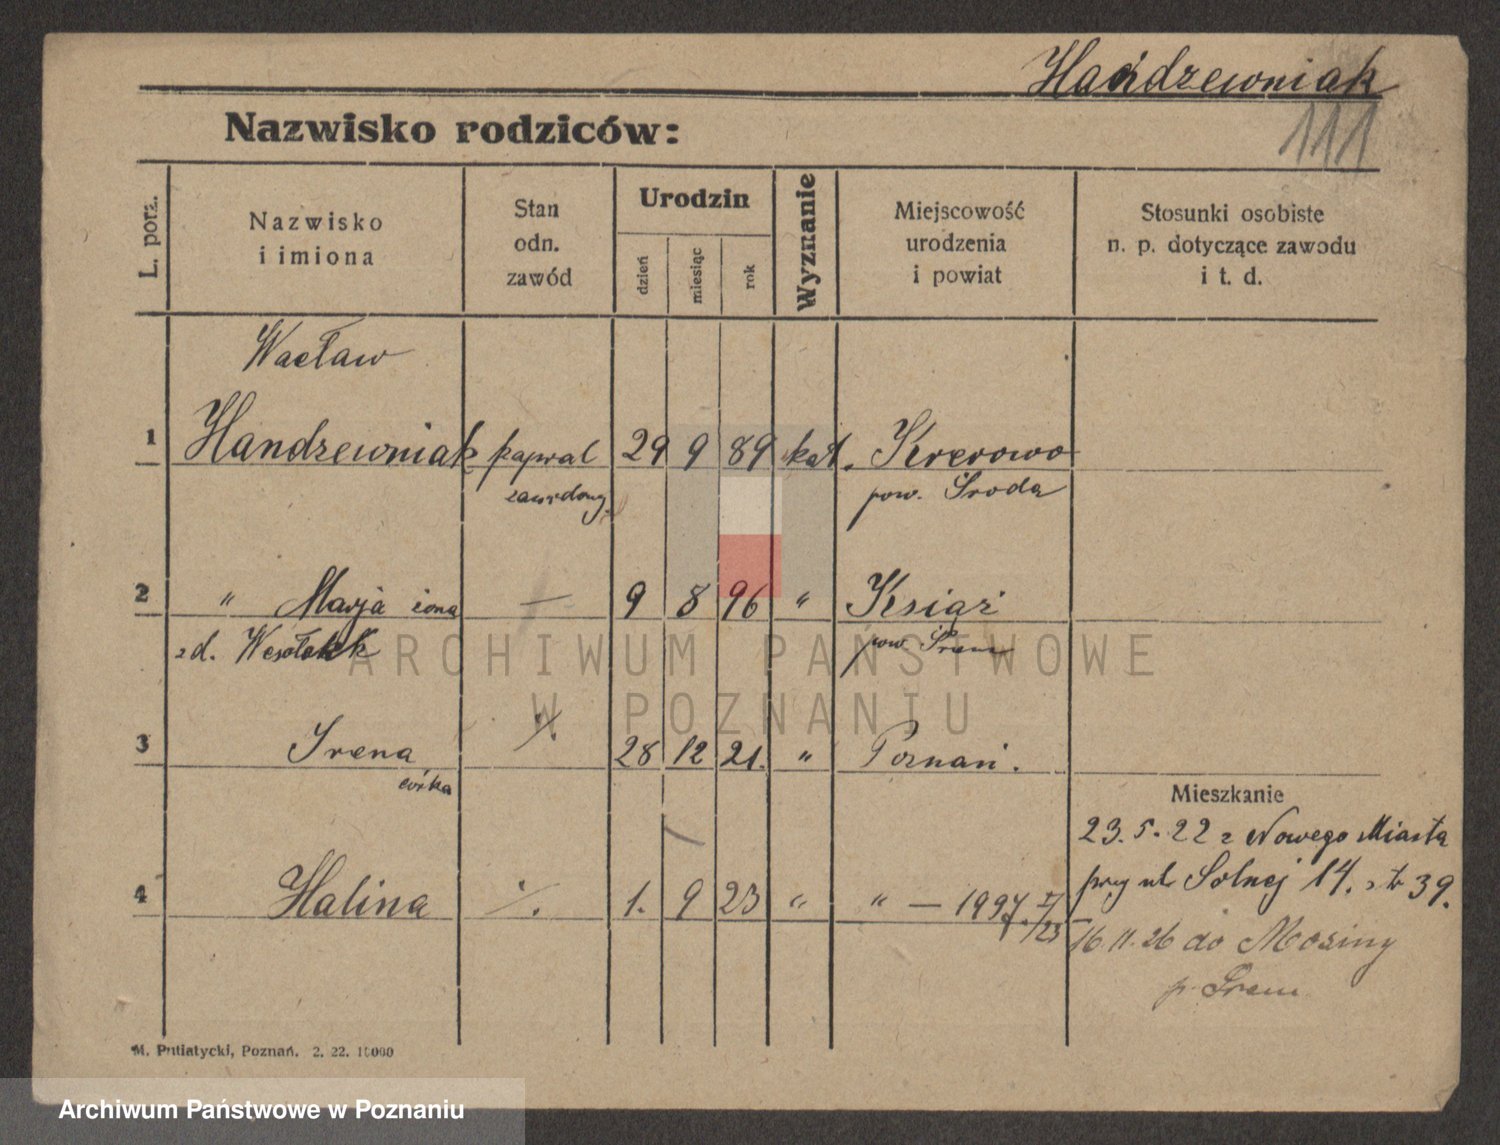 Handzewniak
111
Nazwisko rodziców:
L. porz.
Nazwisko
i imiona
Stan
odn.
zawód
Urodzin
dzień
miesiąc
rok
Wyznanie
Miejscowość
urodzenia
i powiat
Stosunki osobiste
n. p. dotyczące zawodu
i t. d.
Wacław
1 Handzewniak kapral 29 9 89 kat. Krerowo
zawodowy pow. Środa
2 " Marja żona — 9 8 96 " Książ
z d. pow. Śrem
3 Irena ·/. 28 12 21. " Poznań.
córka
Mieszkanie
23. 5. 22 z Nowego Miasta
przy ul. Solnej 14. 39.
4 Halina ·/. 1. 9 23 " " —
16.11.26 do Mosiny
p. Śrem
M. Putiatycki, Poznań. 2. 22. 10000
ARCHIWUM PAŃSTWOWE
W POZNANIU
Archiwum Państwowe w Poznaniu